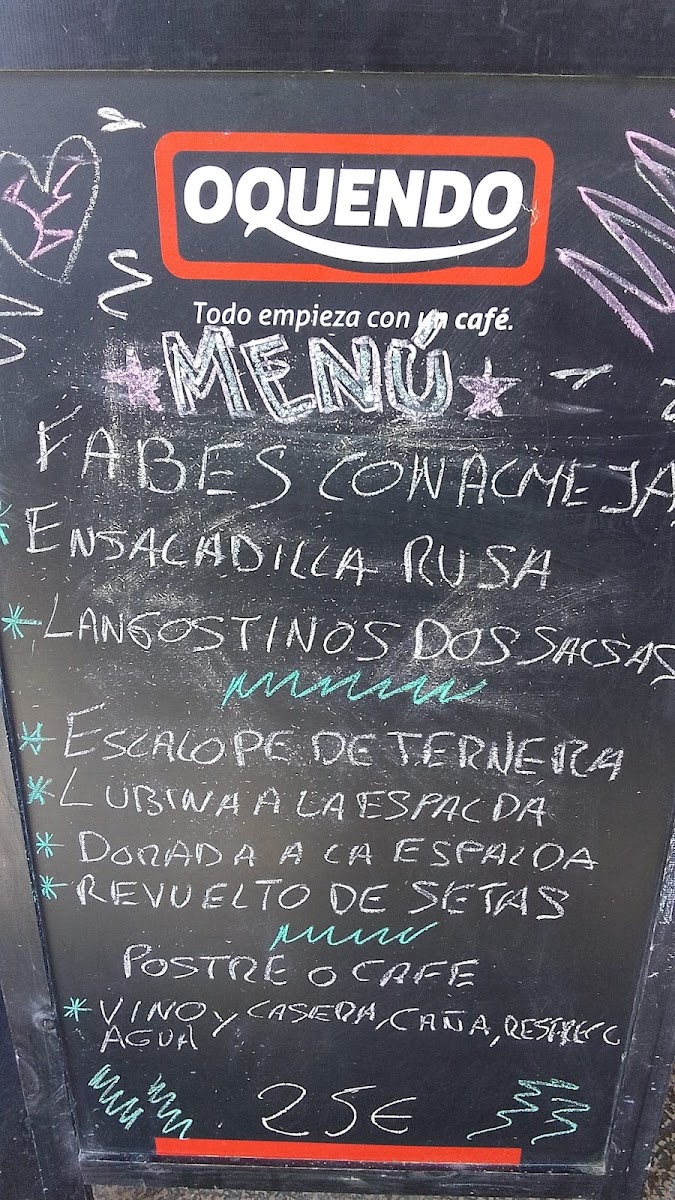 OQUENDO
Todo empieza con un café.
MENÚ
FABES CON ALMEJA
ENSALADILLA RUSA
LANGOSTINOS DOS SALSAS
ESCALOPE DE TERNERA
LUBINA A LA ESPALDA
DORADA A LA ESPALDA
REVUELTO DE SETAS
POSTRE O CAFE
VINO Y CASERA, CAÑA,
AGUA
25€